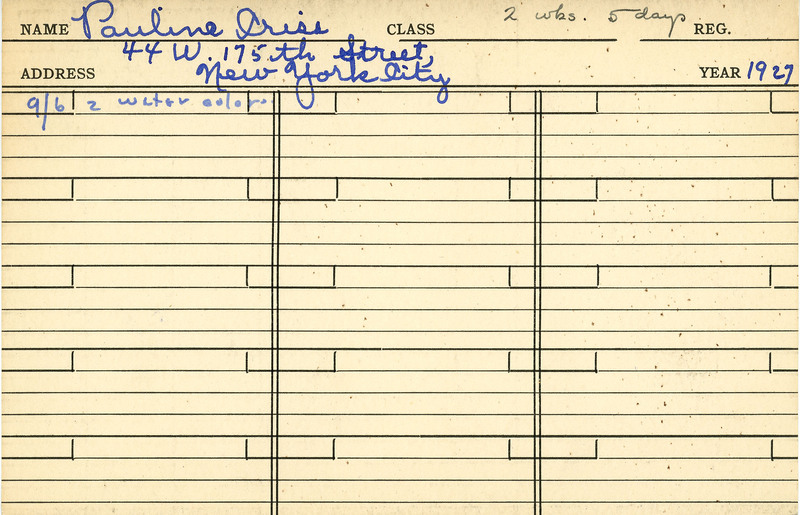 NAME Pauline Driss CLASS 2 wks. 5 days REG.
44 W. 175th Street,
ADDRESS New York City YEAR 1927
9/6 2 water colors